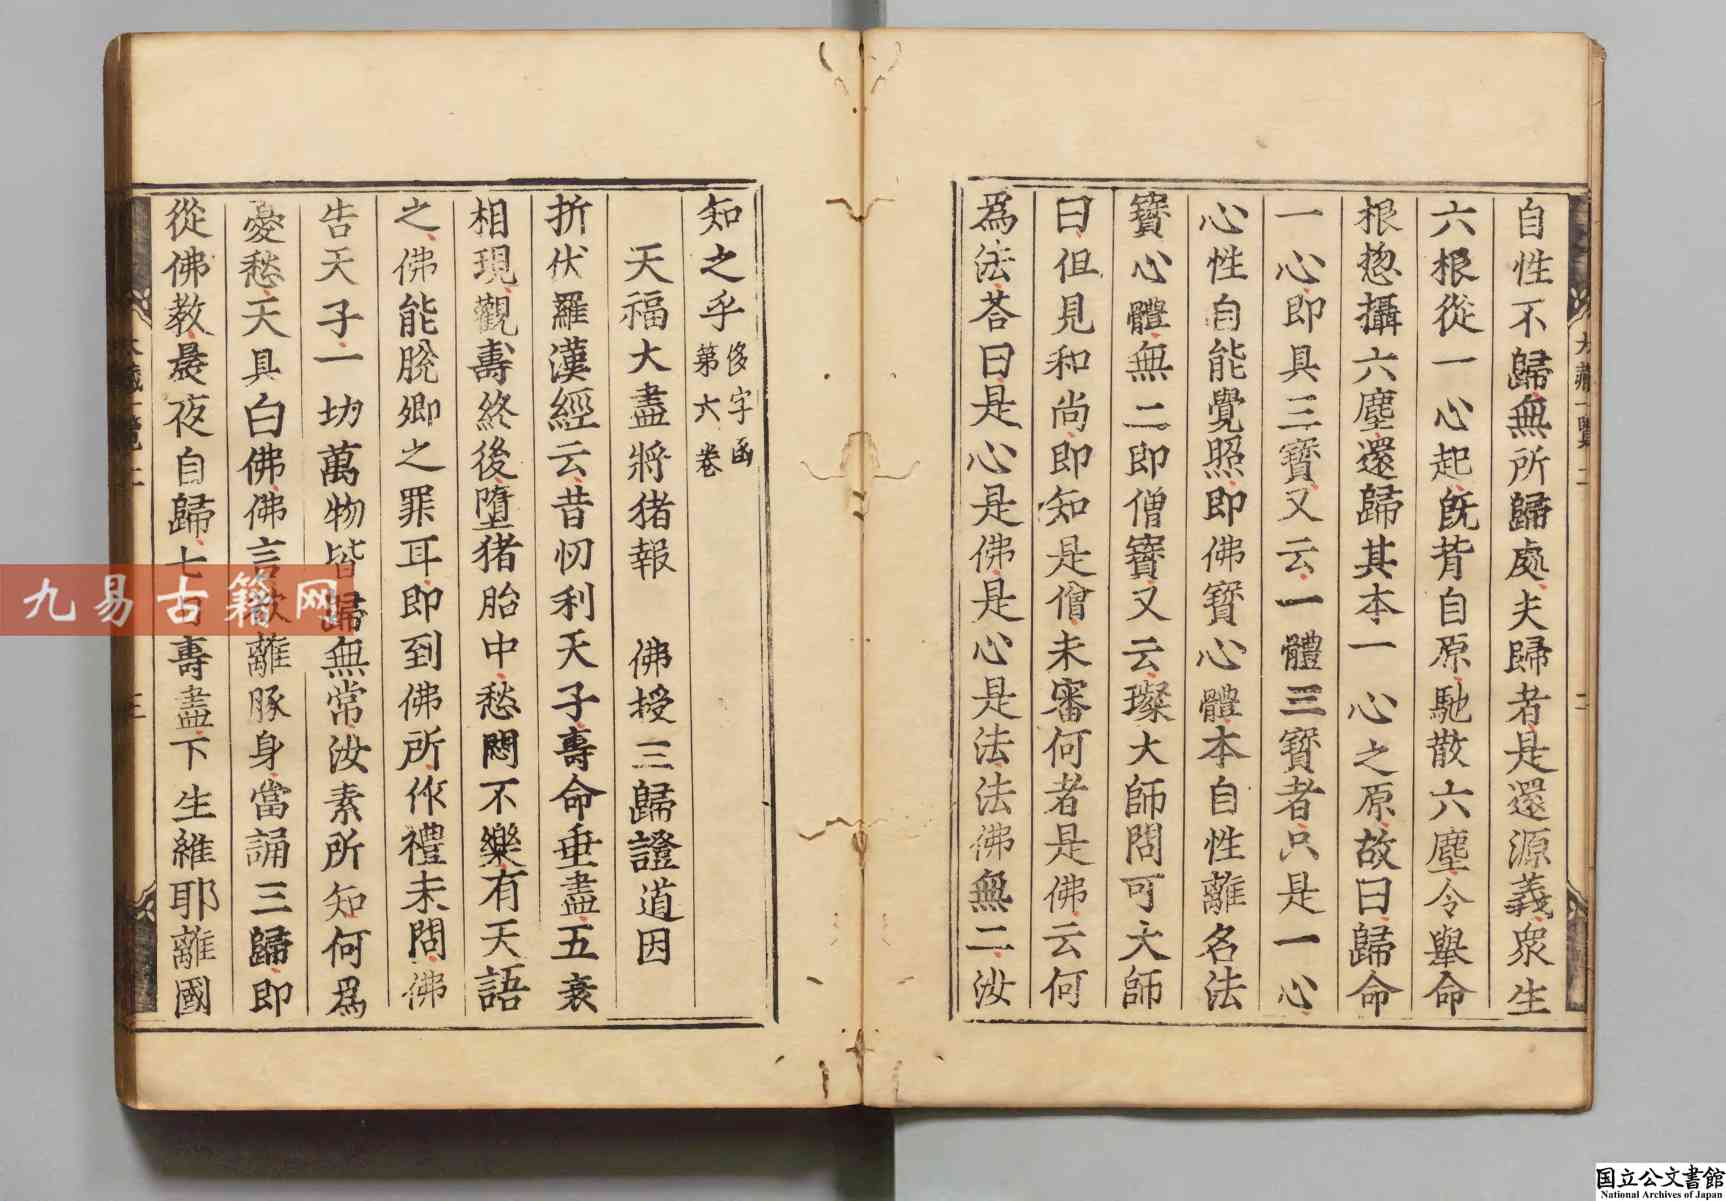 自性不歸無所歸處夫歸者是還源義衆生
六根從一心起旣背自原馳散六塵令舉命
根惣攝六塵還歸其本一心之原故曰歸命
一心即具三寳又云一體三寳者只是一心
心性自能覺照即佛寳心體本自性離名法
寳心體無二即僧寳又云璨大師問可大師
曰但見和尚即知是僧未審何者是佛云何
爲法荅曰是心是佛是心是法法佛無二汝
知之乎 侈字函
第六卷
天福大盡將猪報 佛授三歸證道因
折伏羅漢經云昔忉利天子壽命垂盡五衰
相現觀壽終後墮猪胎中愁悶不樂有天語
之佛能脫卿之罪耳即到佛所作禮未問佛
告天子一切萬物皆歸無常汝素所知何爲
憂愁天具白佛佛言欲離豚身當誦三歸即
從佛教晨夜自歸七日壽盡下生維耶離國
九易古籍网
国立公文書館
National Archives of Japan